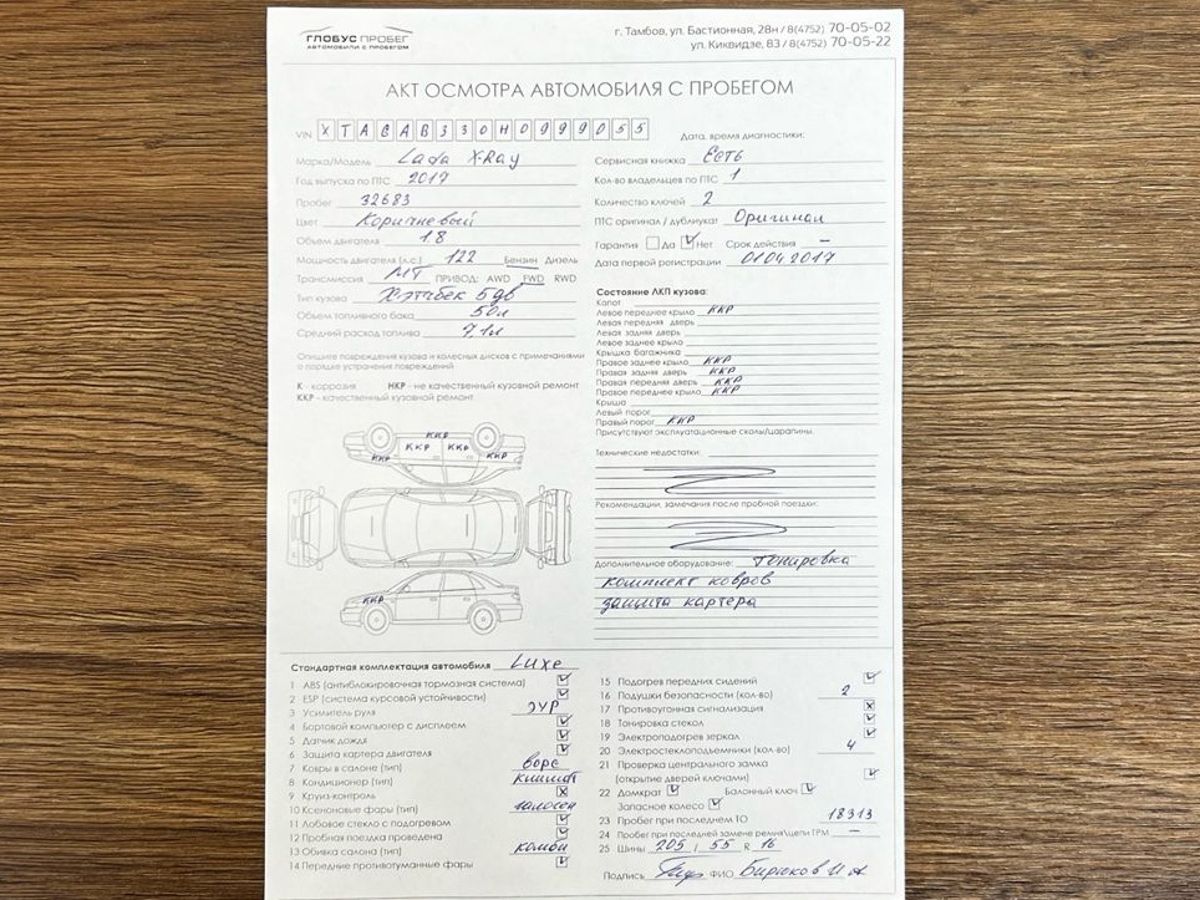 ГЛОБУС ПРОБЕГ
АВТОМОБИЛИ С ПРОБЕГОМ
г. Тамбов, ул. Бастионная, 28н / 8(4752) 70-05-02
ул. Киквидзе, 83 / 8(4752) 70-05-22
АКТ ОСМОТРА АВТОМОБИЛЯ С ПРОБЕГОМ
VIN XTAGAB330H0999055
Дата, время диагностики:
Марка/Модель Lada X-Ray
Год выпуска по ПТС 2017
Пробег 32683
Цвет Коричневый
Объем двигателя 1.8
Мощность двигателя (л.с.) 122 Бензин Дизель
Трансмиссия МТ ПРИВОД: AWD FWD RWD
Тип кузова Хэтчбек 5дв
Объем топливного бака 50л
Средний расход топлива 7,1л
Опишите повреждения кузова и колесных дисков с примечаниями
о порядке устранения повреждений
К - коррозия НКР - не качественный кузовной ремонт
ККР - качественный кузовной ремонт
ККР
ККР ККР
ККР ККР
ККР
Сервисная книжка Есть
Кол-во владельцев по ПТС 1
Количество ключей 2
ПТС оригинал / дубликат Оригинал
Гарантия Да Нет Срок действия —
Дата первой регистрации 01.04.2017
Состояние ЛКП кузова:
Капот
Левое переднее крыло ККР
Левая передняя дверь
Левая задняя дверь
Левое заднее крыло
Крышка багажника
Правое заднее крыло ККР
Правая задняя дверь ККР
Правая передняя дверь ККР
Правое переднее крыло ККР
Крыша
Левый порог
Правый порог ККР
Присутствуют эксплуатационные сколы/царапины.
Технические недостатки:
Рекомендации, замечания после пробной поездки:
Дополнительное оборудование: Тонировка
комплект ковров
защита картера
Стандартная комплектация автомобиля Luxe
1 ABS (антиблокировочная тормозная система)
2 ESP (система курсовой устойчивости)
3 Усилитель руля ЭУР
4 Бортовой компьютер с дисплеем
5 Датчик дождя
6 Защита картера двигателя
7 Ковры в салоне (тип) ворс
8 Кондиционер (тип) климат
9 Круиз-контроль
10 Ксеноновые фары (тип) галоген
11 Лобовое стекло с подогревом
12 Пробная поездка проведена
13 Обивка салона (тип) комби
14 Передние противотуманные фары
15 Подогрев передних сидений
16 Подушки безопасности (кол-во) 2
17 Противоугонная сигнализация
18 Тонировка стекол
19 Электроподогрев зеркал
20 Электростеклоподъемники (кол-во) 4
21 Проверка центрального замка
(открытие дверей ключами)
22 Домкрат Балонный ключ
Запасное колесо
23 Пробег при последнем ТО 18313
24 Пробег при последней замене ремня\цепи ГРМ —
25 Шины 205 / 55 R 16
Подпись ФИО Бирюков И А